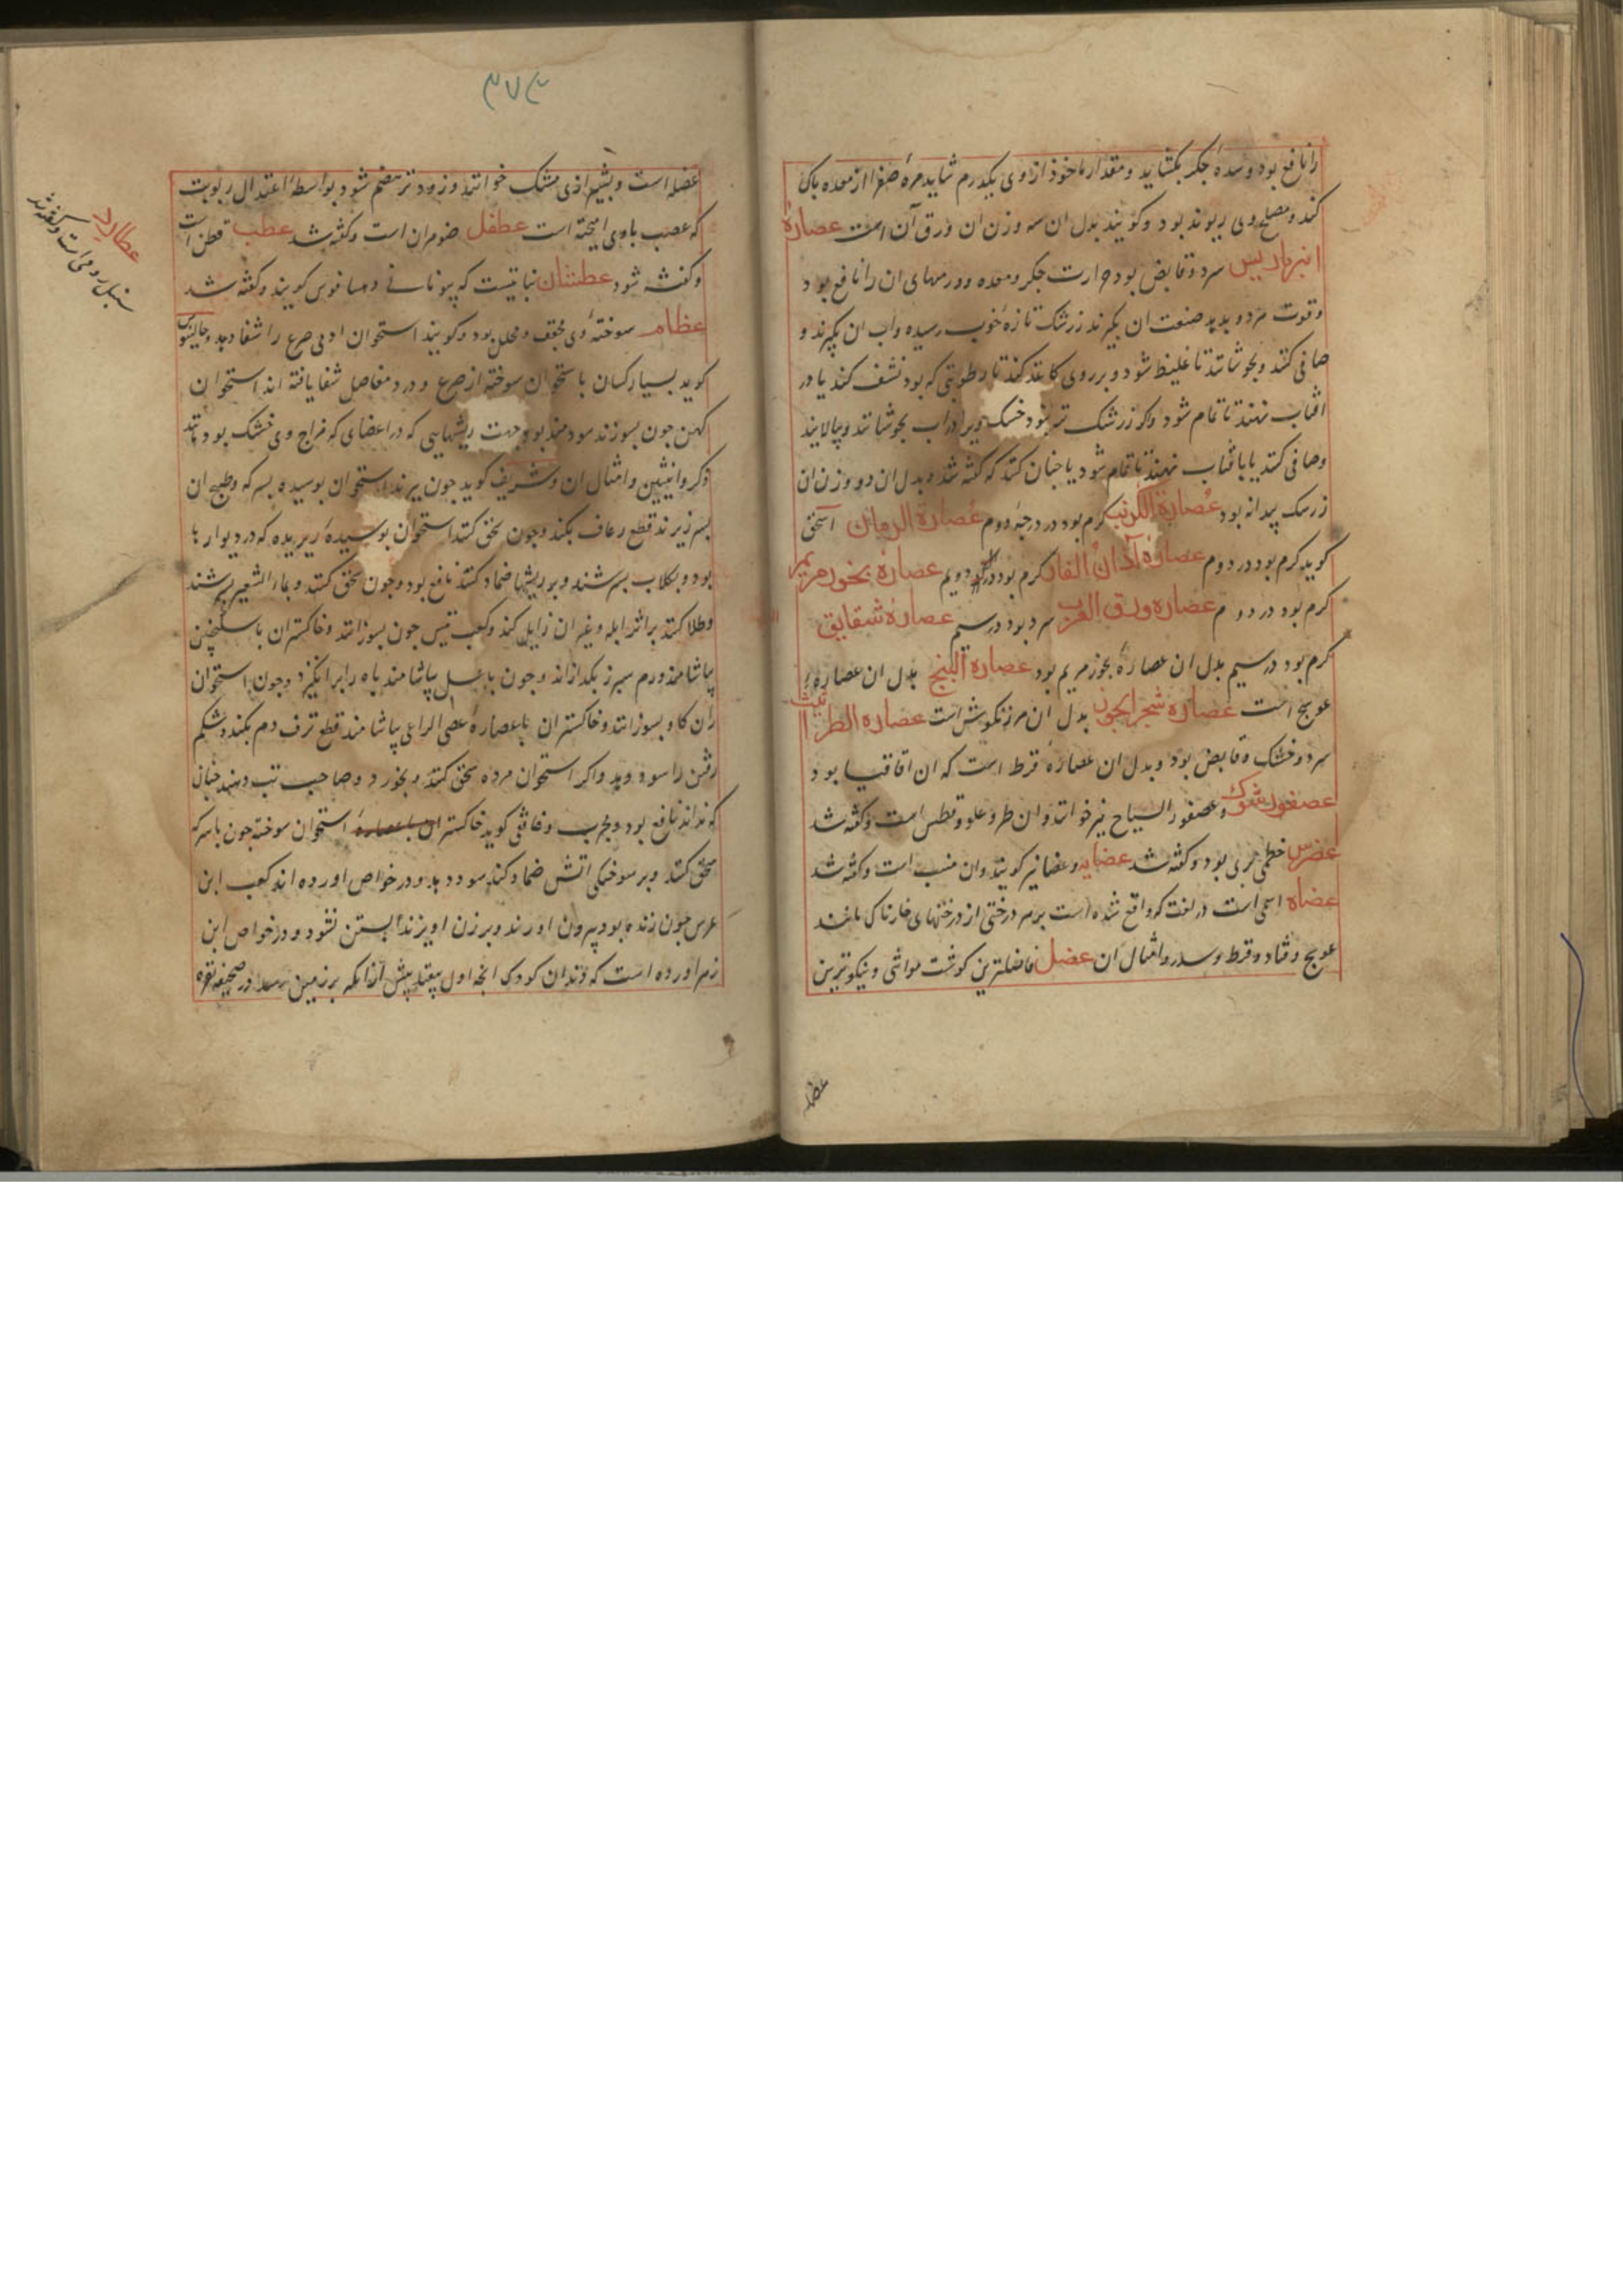 را نافع بود و سده جگر بکشاید و مقدار ماخوذ از وی یکدرم شاید مره صفرا از معده پاک
کند و مصلح وی ریوند بود و کویند بدل ان سه وزن ان ورق آن است عصارۀ
انبرباریس سرد و قابض بود حرارت جکر و معده و ورمهای ان را نافع بود
و قوت مرد و بدید صنعت ان بکیرند زرشک تازه خوب رسیده و آب ان بکیرند و
صافی کنند و بجوشانند تا غلیظ شود و بر روی کاغذ کنند تا رطوبتی که بود نشف کند یا در
افتاب نهند تا تمام شود و اکر زرشک تر نبود خشک ویرا در آب بجوشانند و بپالایند
و صافی کنند یا بافتاب نهند تا تمام شود یا چنان کنند که کفته شد و بدل ان دو وزن ان
زرسک بیدانه بود عصارة الکرنب کرم بود در درجۀ دوم عصارة الرمان اسحق
کوید کرم بود در دوم عصارة آذان الفار کرم بود در دویم عصارۀ بخور مریم
کرم بود در دوم عصاره ورق الغرب سرد بود در سیم عصارۀ شقایق
کرم بود در سیم بدل ان عصارۀ بخور مریم بود عصاره البنج بدل ان عصارۀ
عوسج است عصارۀ شجر بدل ان مرزنکوش است عصاره الطراثیث
سرد و خشک و قابض بود و بدل ان عصارۀ قرط است که ان اقاقیا بود
عصفور شوک و عصفور السیاح نیز خوانند و ان طروعلودقطس است و کفته شد
عضرس خطمی بری بود و کفته شد عضایه و عضا نیز کویند و ان ضب است و کفته شد
عضاه اسمی است در لغت که واقع شده است بر هر درختی از درختهای خارناک مانند
عوسج و قتاد و قرط و سدر و امثال ان عضل فاضلترین کوشت مواشی و نیکوترین
عضله
۳۷۴
عضله است و بشیرازی مشک خوانند و زودتر هضم شود بواسطه اعتدال رطوبت
که عصب باوی امیخته است عطفل ضومران است و کفته شد عطب قطن است
و کفته شود عطشان نباتیست که بیونانی دیساقوس کویند و کفته شد
عظام سوختۀ وی مجفف و محلل بود و کویند استخوان ادمی صرع را شفا دهد و جالینوس
کوید بسیار کسان باستخوان سوخته از صرع و درد مفاصل شفا یافته اند استخوان
کهن چون بسوزند سودمند بود جهت ریشهایی که در اعضای که مزاج وی خشک بود مانند
ذکر و انثیین و امثال ان و شریف کوید چون بیرند استخوان بوسیده بسرکه و طبیخ ان
بسر زیرند قطع رعاف بکند و چون سحق کنند استخوان بوسیدۀ ریزیده که در دیوارها
بود و بکلاب بسرشند و بر ریشها ضماد کنند نافع بود و چون سحق کنند و بماء الشعیر بسرشند
و طلا کنند بر اثر ابله و غیر ان زایل کند و کعب تیس چون بسوزانند و خاکستر ان با سکنجبین
بیاشامند ورم سپرز بکدازاند و چون با عسل بیاشامند باه را برانکیزد و چون استخوان
ران کاو بسوزانند و خاکستر ان با عصارۀ عصی الراعی بیاشامند قطع نزف دم بکند و شکم
رفتن را سود دهد و اکر استخوان مرده سحق کنند و بخورد و صاحب تب دهند چنان
که نداند نافع بود و مجرب و غافقی کوید خاکستر ان با عصارۀ استخوان سوخته چون باسرکه
سحق کنند و بر سوختکی اتش ضماد کنند سود دهد و در خواص اورده اند کعب ابن
عرس چون زنده بود بیرون اورند و بر زن اویزند ابستن نشود و در خواص ابن
زهر اورده است که دندان کودک انچه اول بیفتد پیش از انکه بر زمین رسد در صحیفه نقره
عطارد
سنبل رومی است و کفته شد